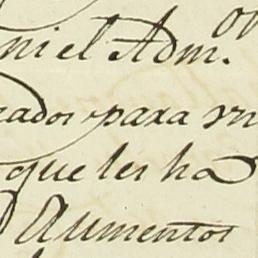 ni el Adm.or
zados para
que les ha
Aumentos